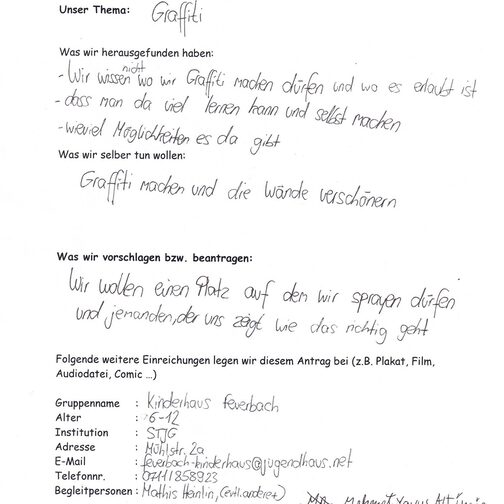 Unser Thema: Graffiti
Was wir herausgefunden haben:
- Wir wissen nicht wo wir Graffiti machen dürfen und wo es erlaubt ist
- dass man da viel lernen kann und selbst machen
- wieviel Möglichkeiten es da gibt
Was wir selber tun wollen:
Graffiti machen und die Wände verschönern
Was wir vorschlagen bzw. beantragen:
Wir wollen einen Platz auf dem wir sprayen dürfen
und jemanden, der uns zeigt wie das richtig geht
Folgende weitere Einreichungen legen wir diesem Antrag bei (z.B. Plakat, Film,
Audiodatei, Comic ...)
Gruppenname : Kinderhaus Feuerbach
Alter : 6-12
Institution : STJG
Adresse : Mühlstr. 2a
E-Mail : feuerbach-kinderhaus@jugendhaus.net
Telefonnr. : 0711/858923
Begleitpersonen : Mathis Heinlin, (evtl. andere)